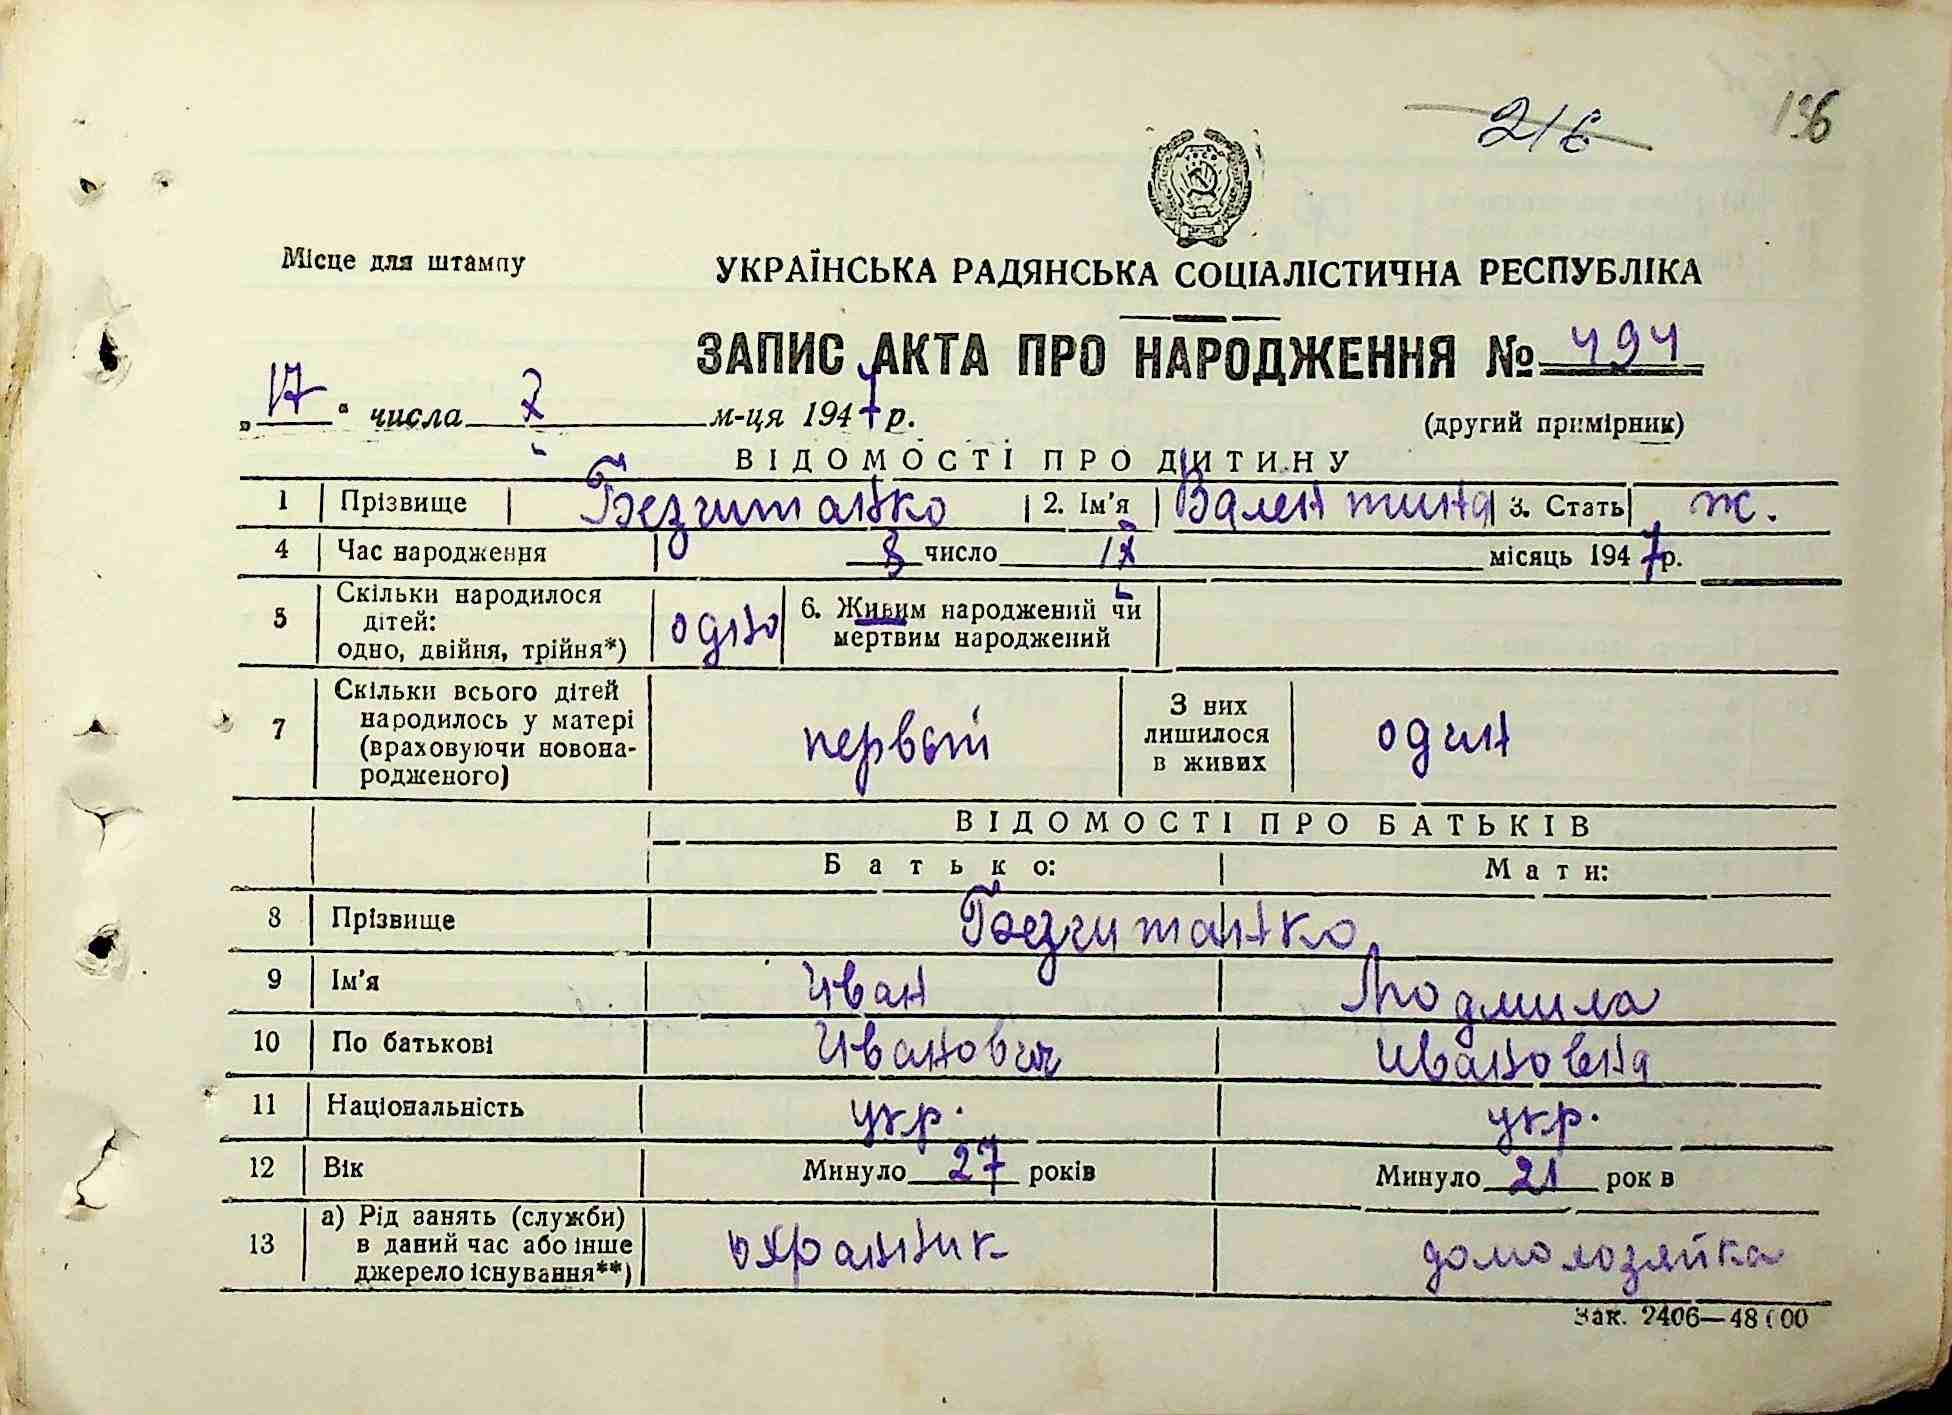 216
196
Місце для штампу
УКРАЇНСЬКА РАДЯНСЬКА СОЦІАЛІСТИЧНА РЕСПУБЛІКА
ЗАПИС АКТА ПРО НАРОДЖЕННЯ № 494
„17" числа X м-ця 1947 р.
(другий примірник)
ВІДОМОСТІ ПРО ДИТИНУ
1 Прізвище Безгитайко 2. Ім'я Валентина 3. Стать ж.
4 Час народження 8 число IX місяць 1947 р.
5 Скільки народилося дітей: одно, двійня, трійня*) одно 6. Живим народжений чи мертвим народжений
7 Скільки всього дітей народилось у матері (враховуючи новонародженого) первый З них лишилося в живих один
ВІДОМОСТІ ПРО БАТЬКІВ
Батько: Мати:
8 Прізвище Безгитанко
9 Ім'я Иван Людмила
10 По батькові Иванович Ивановна
11 Національність укр. укр.
12 Вік Минуло 27 років Минуло 21 рок в
13 а) Рід занять (служби) в даний час або інше джерело існування**) охранник домохозяйка
Зак. 2406—48